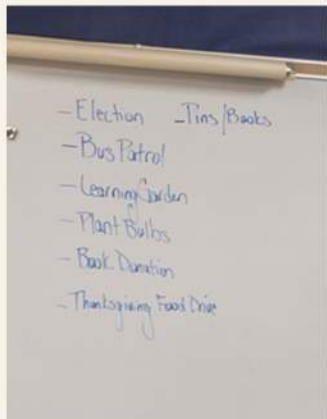 - Election - Pins/Books
- Bus Patrol
- Learning Garden
- Plant Bulbs
- Book Donation
- Thanksgiving Food Drive